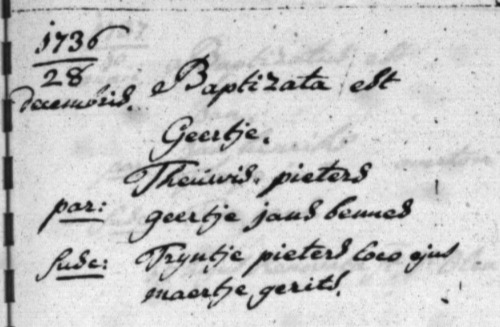 1736
28
decembris. Baptizata est
Geertje.
Theuwis. pieters
par: geertje jans bennes
susc: Tryntje pieters loco ejus
maertje gerits.